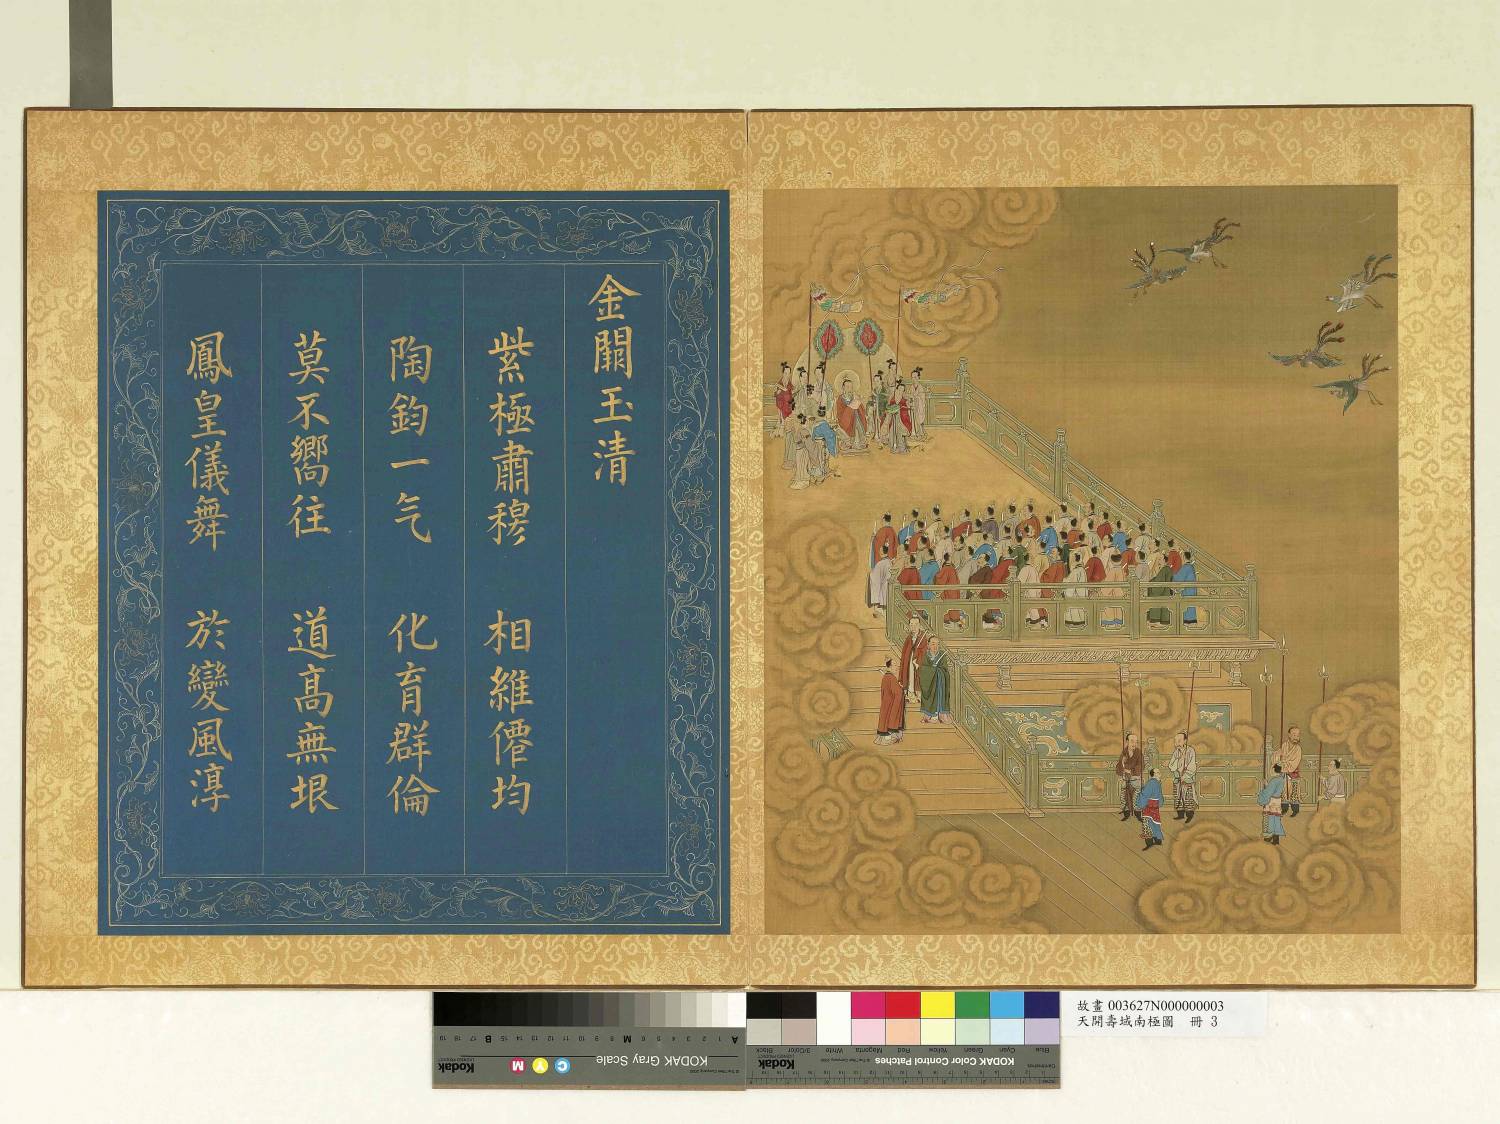 金闕玉清
紫極肅穆　相維僊均
陶鈞一气　化育群倫
莫不嚮往　道高無垠
鳳皇儀舞　於變風淳
故畫 003627N000000003
天開壽域南極圖　冊 3
KODAK Gray Scale
Kodak
C Y M
A 1 2 3 4 5 6 M 8 9 10 11 12 13 14 15 B 17 18 19
KODAK Color Control Patches
Kodak
Blue Cyan Green Yellow Red Magenta White 3/Color Black
Centimetres